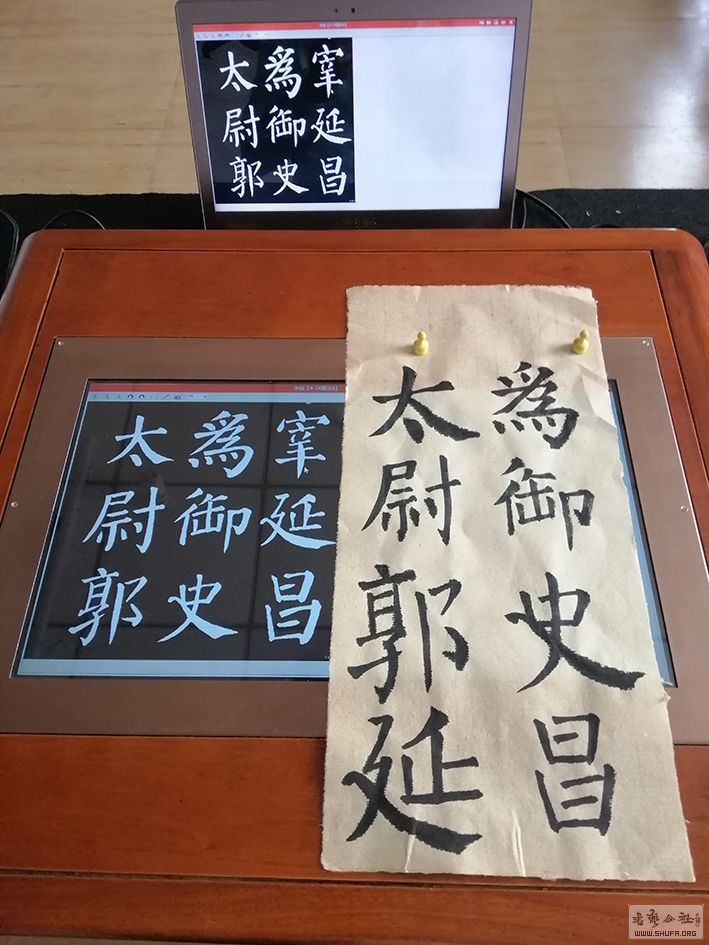 宰延昌
爲御史
太尉郭
宰延昌
爲御史
太尉郭
爲御史昌
太尉郭延
WWW.SHUFA.ORG